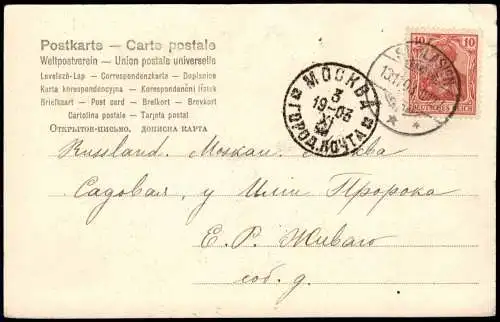 Postkarte — Carte postale
Weltpostverein — Union postale universelle
Levelező-Lap — Correspondenzkarte — Dopisnice
Karta korespondencyjna — Korespondenční lístek
Briefkaart — Post card — Brefkort — Brevkort
Cartolina postale — Tarjeta postal
Открытое-письмо, дописна карта
10 10
DEUTSCHES REICH
МОСКВА
3
19-03
XI
ГОРОД. ПОЧТА
Russland. Москва
Садовая, у Илии Пророка
Е. Р. Живаго
соб. д.